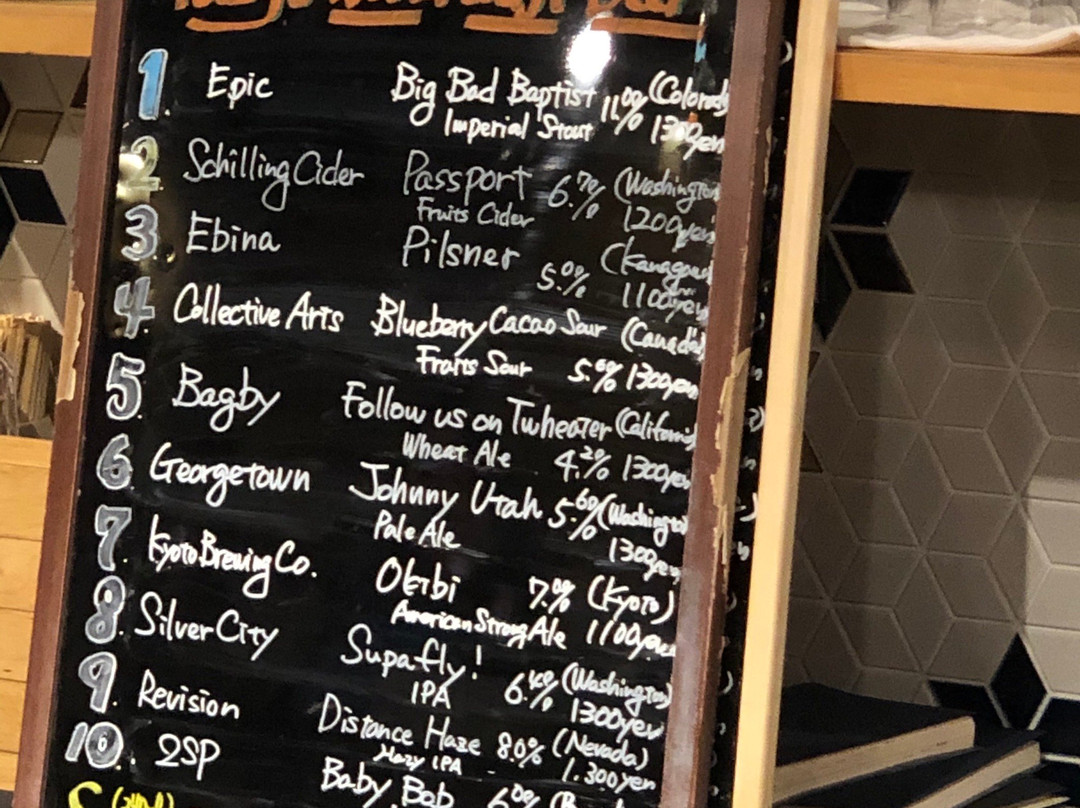 1. Epic Big Bad Baptist 11.0% (Colorado
Imperial Stout 1300yen
2 Schilling Cider Passport 6.7% (Washington
Fruits Cider 1200yen
3. Ebina Pilsner (Kanagawa
5.0% 1100yen
4. Collective Arts Blueberry Cacao Sour (Canada)
Fruits Sour 5.6% 1300yen
5. Bagby Follow us on Twheater (California
Wheat Ale 4.2% 1300yen
6. Georgetown Johnny Utah 5.6% (Washington
Pale Ale 1300yen
7. Kyoto Brewing Co. Okibi 7.0% (Kyoto)
American Strong Ale 1100yen
8. Silver City Supafly! 6.4% (Washington)
IPA 1300yen
9. Revision Distance Haze 8.0% (Nevada)
Hazy IPA 1.300yen
10. 2SP Baby Bob 6.0%